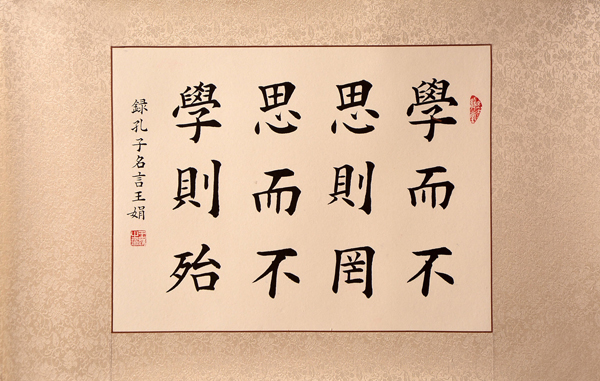 學而不
思則罔
思而不
學則殆
録孔子名言王娟